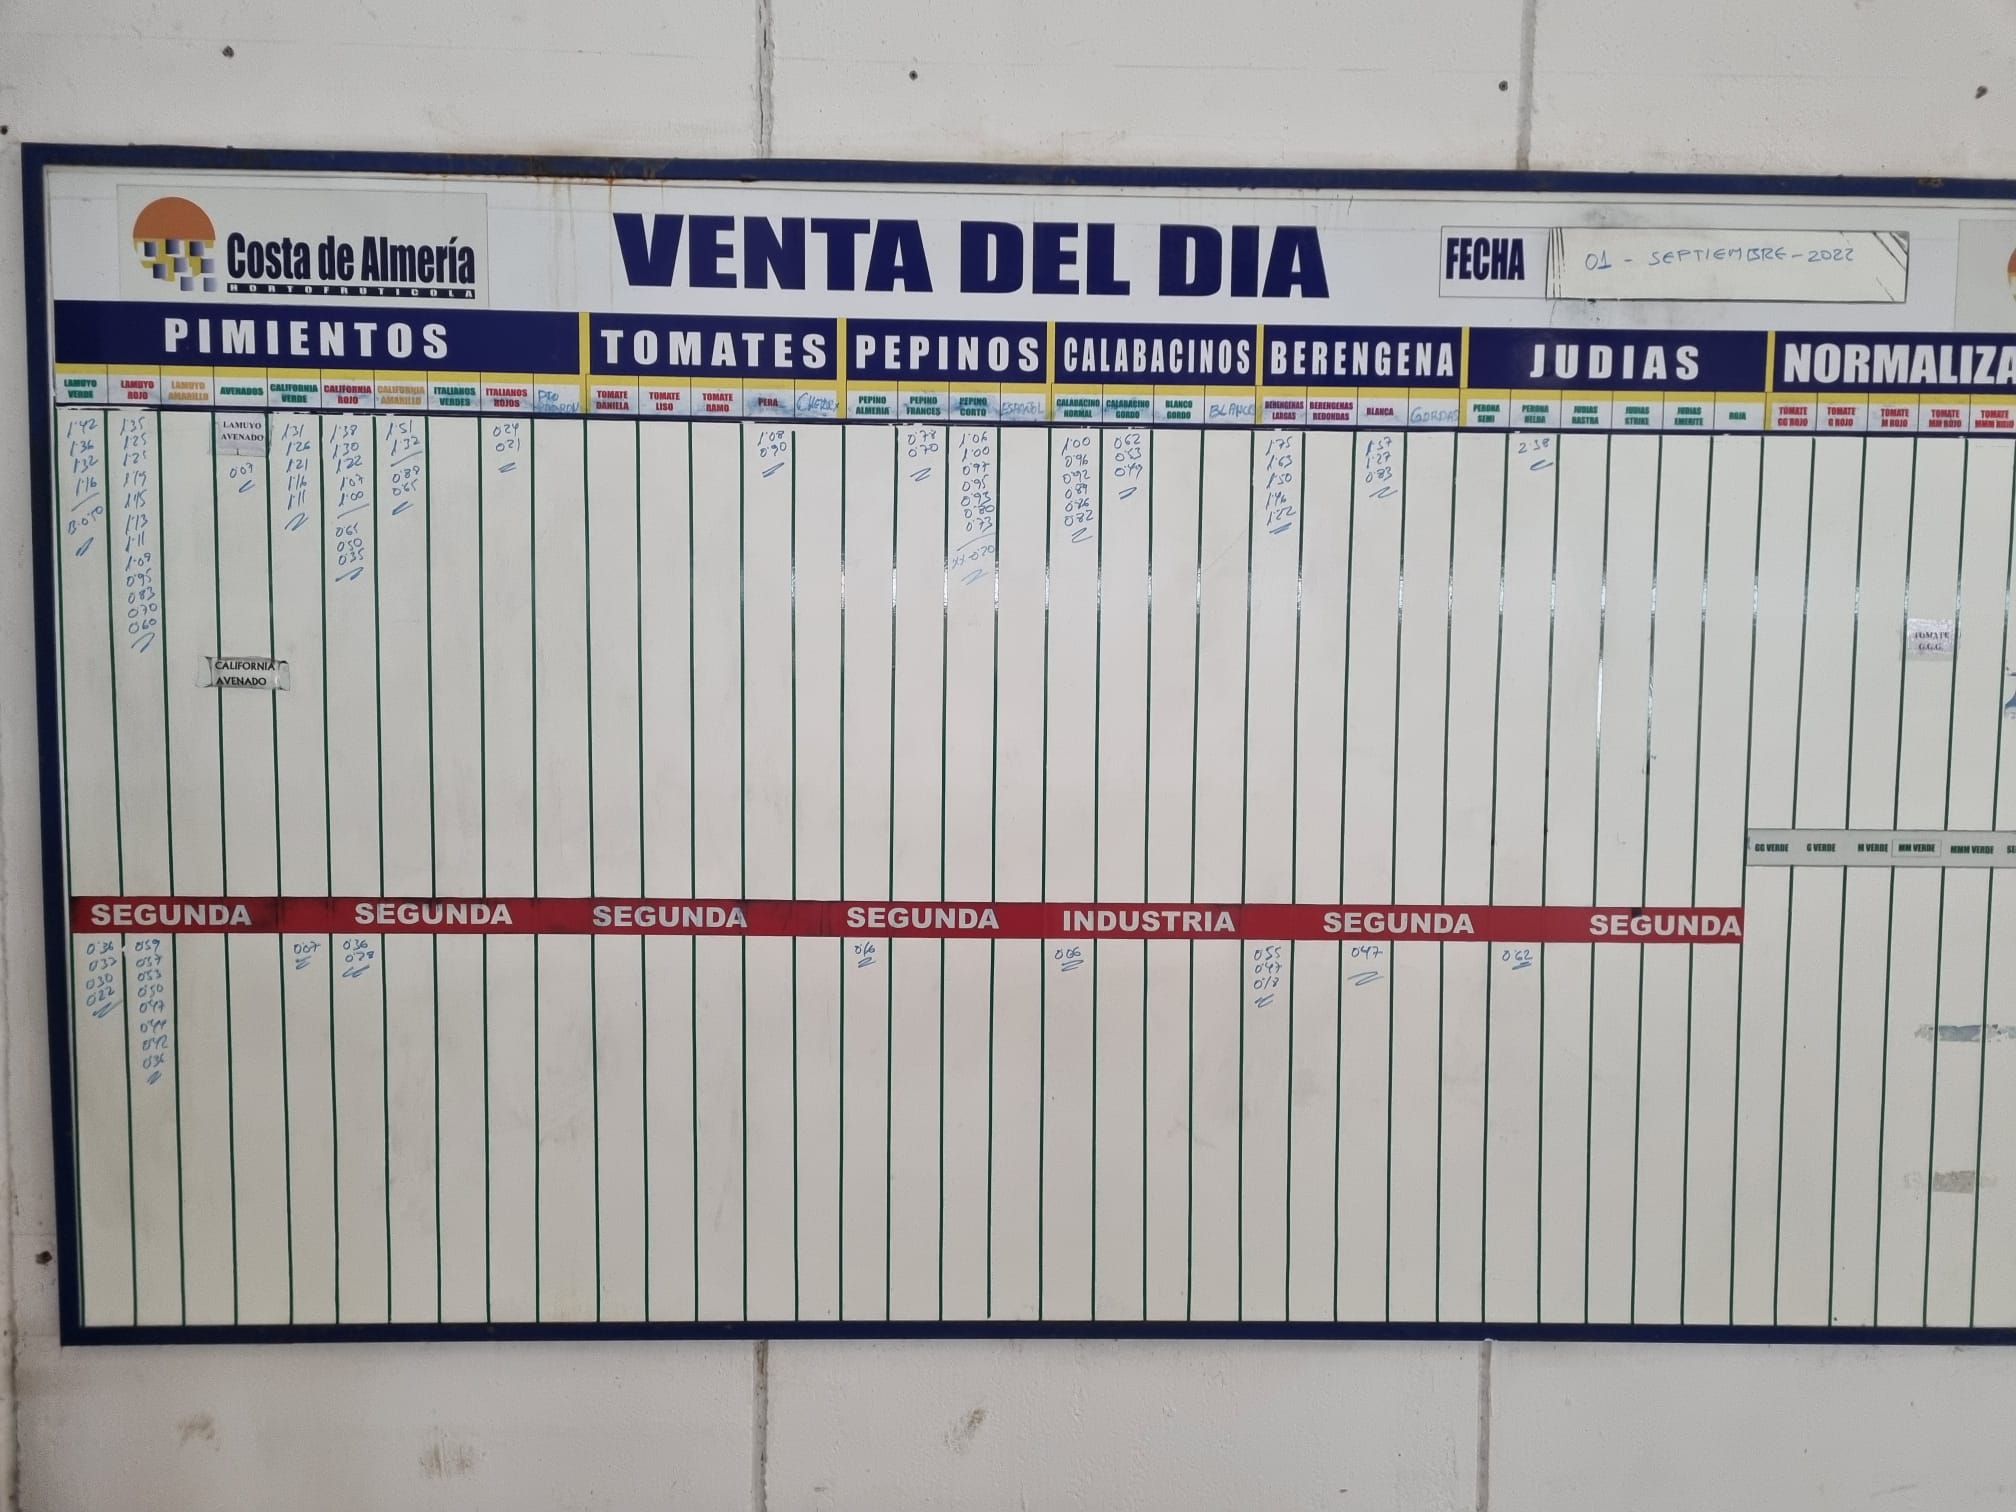 Costa de Almería
HORTOFRUTICOLA
VENTA DEL DIA
FECHA
01 - SEPTIEMBRE - 2022
PIMIENTOS
TOMATES
PEPINOS
CALABACINOS
BERENGENA
JUDIAS
NORMALIZA
LAMUYO VERDE
LAMUYO ROJO
LAMUYO AMARILLO
AVENADOS
CALIFORNIA VERDE
CALIFORNIA ROJO
CALIFORNIA AMARILLO
ITALIANOS VERDES
ITALIANOS ROJOS
TOMATE DANIELA
TOMATE LISO
TOMATE RAMO
PERA
CHERRY
PEPINO ALMERIA
PEPINO FRANCES
PEPINO CORTO
ESPAÑOL
CALABACINO NORMAL
CALABACINO GORDO
BLANCO GORDO
BLANCO
BERENGENAS LARGAS
BERENGENAS REDONDAS
BLANCA
GORDAS
PERONA SEMI
PERONA HELDA
JUDIAS RASTRA
JUDIAS STRIKE
JUDIAS EMERITE
ROJA
TOMATE GG ROJO
TOMATE G ROJO
TOMATE M ROJO
TOMATE MM ROJO
TOMATE MMM ROJO
1'42
1'36
1'32
1'16
1'35
1'25
1'21
1'19
1'15
1'13
1'11
1'09
0'95
0'83
0'70
0'60
LAMUYO
AVENADO
0'07
1'31
1'26
1'21
1'16
1'11
1'38
1'30
1'22
1'07
1'00
0'65
0'50
0'35
1'51
1'32
0'88
0'65
0'24
0'21
1'08
0'90
0'78
0'70
1'06
1'00
0'97
0'95
0'93
0'80
0'73
1'00
0'96
0'92
0'89
0'86
0'82
0'62
0'53
0'49
1'75
1'63
1'50
1'46
1'22
1'57
1'27
0'83
2'38
CALIFORNIA
AVENADO
TOMATE
G.G.G.
GG VERDE
G VERDE
M VERDE
MM VERDE
MMM VERDE
SEGUNDA
SEGUNDA
SEGUNDA
SEGUNDA
INDUSTRIA
SEGUNDA
SEGUNDA
0'36
0'33
0'30
0'22
0'59
0'57
0'53
0'50
0'47
0'44
0'42
0'36
0'07
0'36
0'28
0'06
0'55
0'47
0'18
0'47
0'62